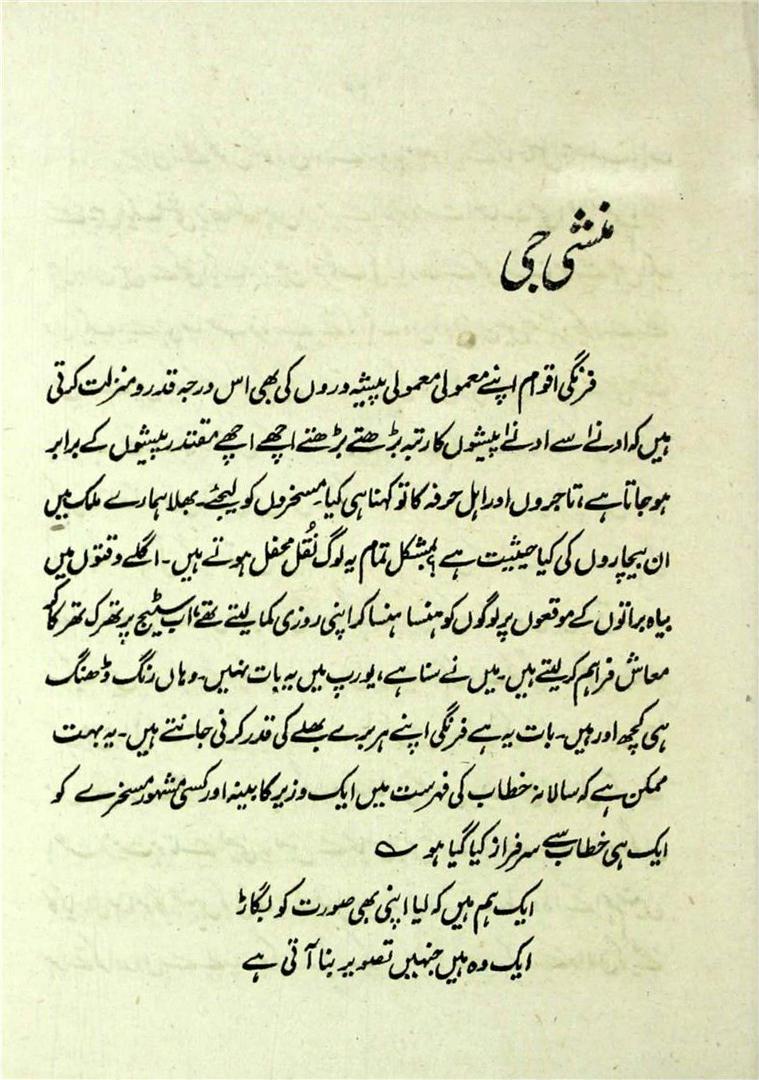 منشی جی
فرنگی اقوام اپنے معمولی معمولی پیشہ وروں کی بھی اس درجہ قدر و منزلت کرتی
ہیں کہ ادنےٰ سے ادنےٰ پیشوں کا رتبہ بڑھتے بڑھتے اچھے اچھے مقتدر پیشوں کے برابر
ہو جاتا ہے، تاجروں اور اہل حرفہ کا تو کہنا ہی کیا۔ مسخروں کو لیجئے۔ بھلا ہمارے ملک میں
ان بیچاروں کی کیا حیثیت ہے؟ بمشکل تمام یہ لوگ نُقل محفل ہوتے ہیں۔ اگلے وقتوں میں
بیاہ براتوں کے موقعوں پر لوگوں کو ہنسا ہنسا کر اپنی روزی کما لیتے تھے، اب سٹیج پر تھرک تھرک کر
معاش فراہم کر لیتے ہیں۔ میں نے سنا ہے، یورپ میں یہ بات نہیں۔ وہاں رنگ ڈھنگ
ہی کچھ اور ہیں۔ بات یہ ہے فرنگی اپنے ہر برے بھلے کی قدر کرنی جانتے ہیں۔ یہ بہت
ممکن ہے کہ سالانہ خطاب کی فہرست میں ایک وزیر کابینہ اور کسی مشہور مسخرے کو
ایک ہی خطاب سے سرفراز کیا گیا ہو ؎
ایک ہم ہیں کہ لیا اپنی بھی صورت کو بگاڑ
ایک وہ ہیں جنہیں تصویر بنا آتی ہے